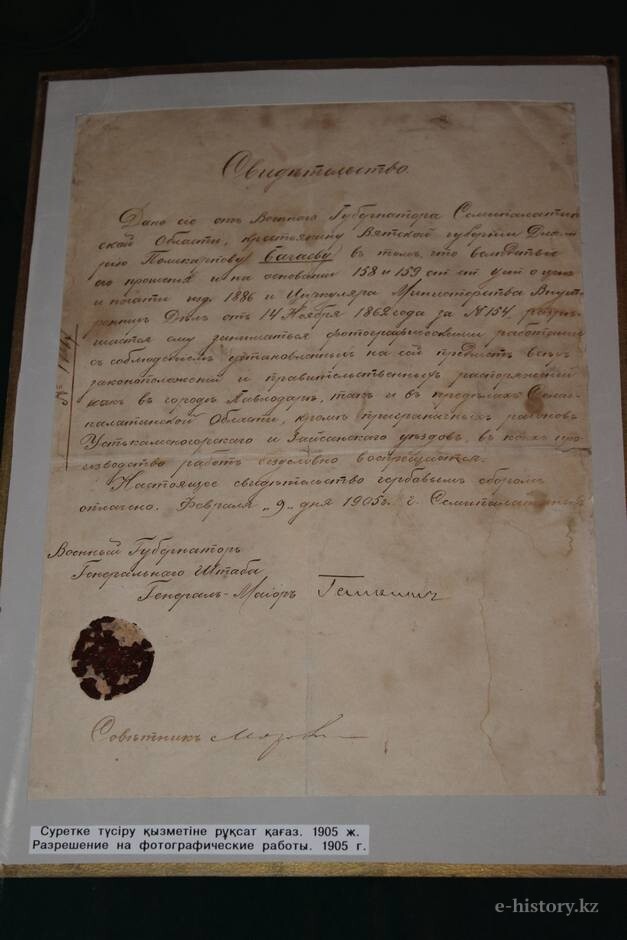 Свидѣтельство.
Дано сіе отъ Военнаго Губернатора Семипалатин
ской Области, крестьянину Вятской губерніи Дми
трію Поликарпову Багаеву въ томъ, что вслѣдствіе
его прошенія и на основаніи 158 и 159 ст. ст. уст. о ценз.
и печати изд. 1886 и Циркуляра Министерства Внут
реннихъ Дѣлъ отъ 14 Ноября 1862 года за № 154, разрѣ
шается ему заниматься фотографическими работами
съ соблюденіемъ установленныхъ на сей предметъ всѣхъ
законоположеній и правительственныхъ распоряженій
какъ въ городѣ Павлодарѣ, такъ и въ предѣлахъ Семи
палатинской Области, кромѣ приграничныхъ районовъ
Устькаменогорскаго и Зайсанскаго уѣздовъ, въ коихъ про
изводство работъ безусловно воспрещается.
Настоящее свидѣтельство гербовымъ сборомъ
оплачено. Февраля „9„ дня 1905 г. г. Семипалатинскъ
№
Военный Губернаторъ
Генеральнаго Штаба
Генералъ-Маіоръ
Совѣтникъ
Суретке түсіру қызметіне рұқсат қағаз. 1905 ж.
Разрешение на фотографические работы. 1905 г.
e-history.kz